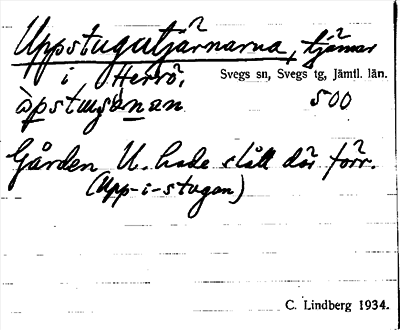 Uppstugutjärnarna, tjärnar
i Herrö, Svegs sn, Svegs tg, Jämtl. län.
500
Gården U. hade slått där förr.
(Upp-i-stugan)
C. Lindberg 1934.